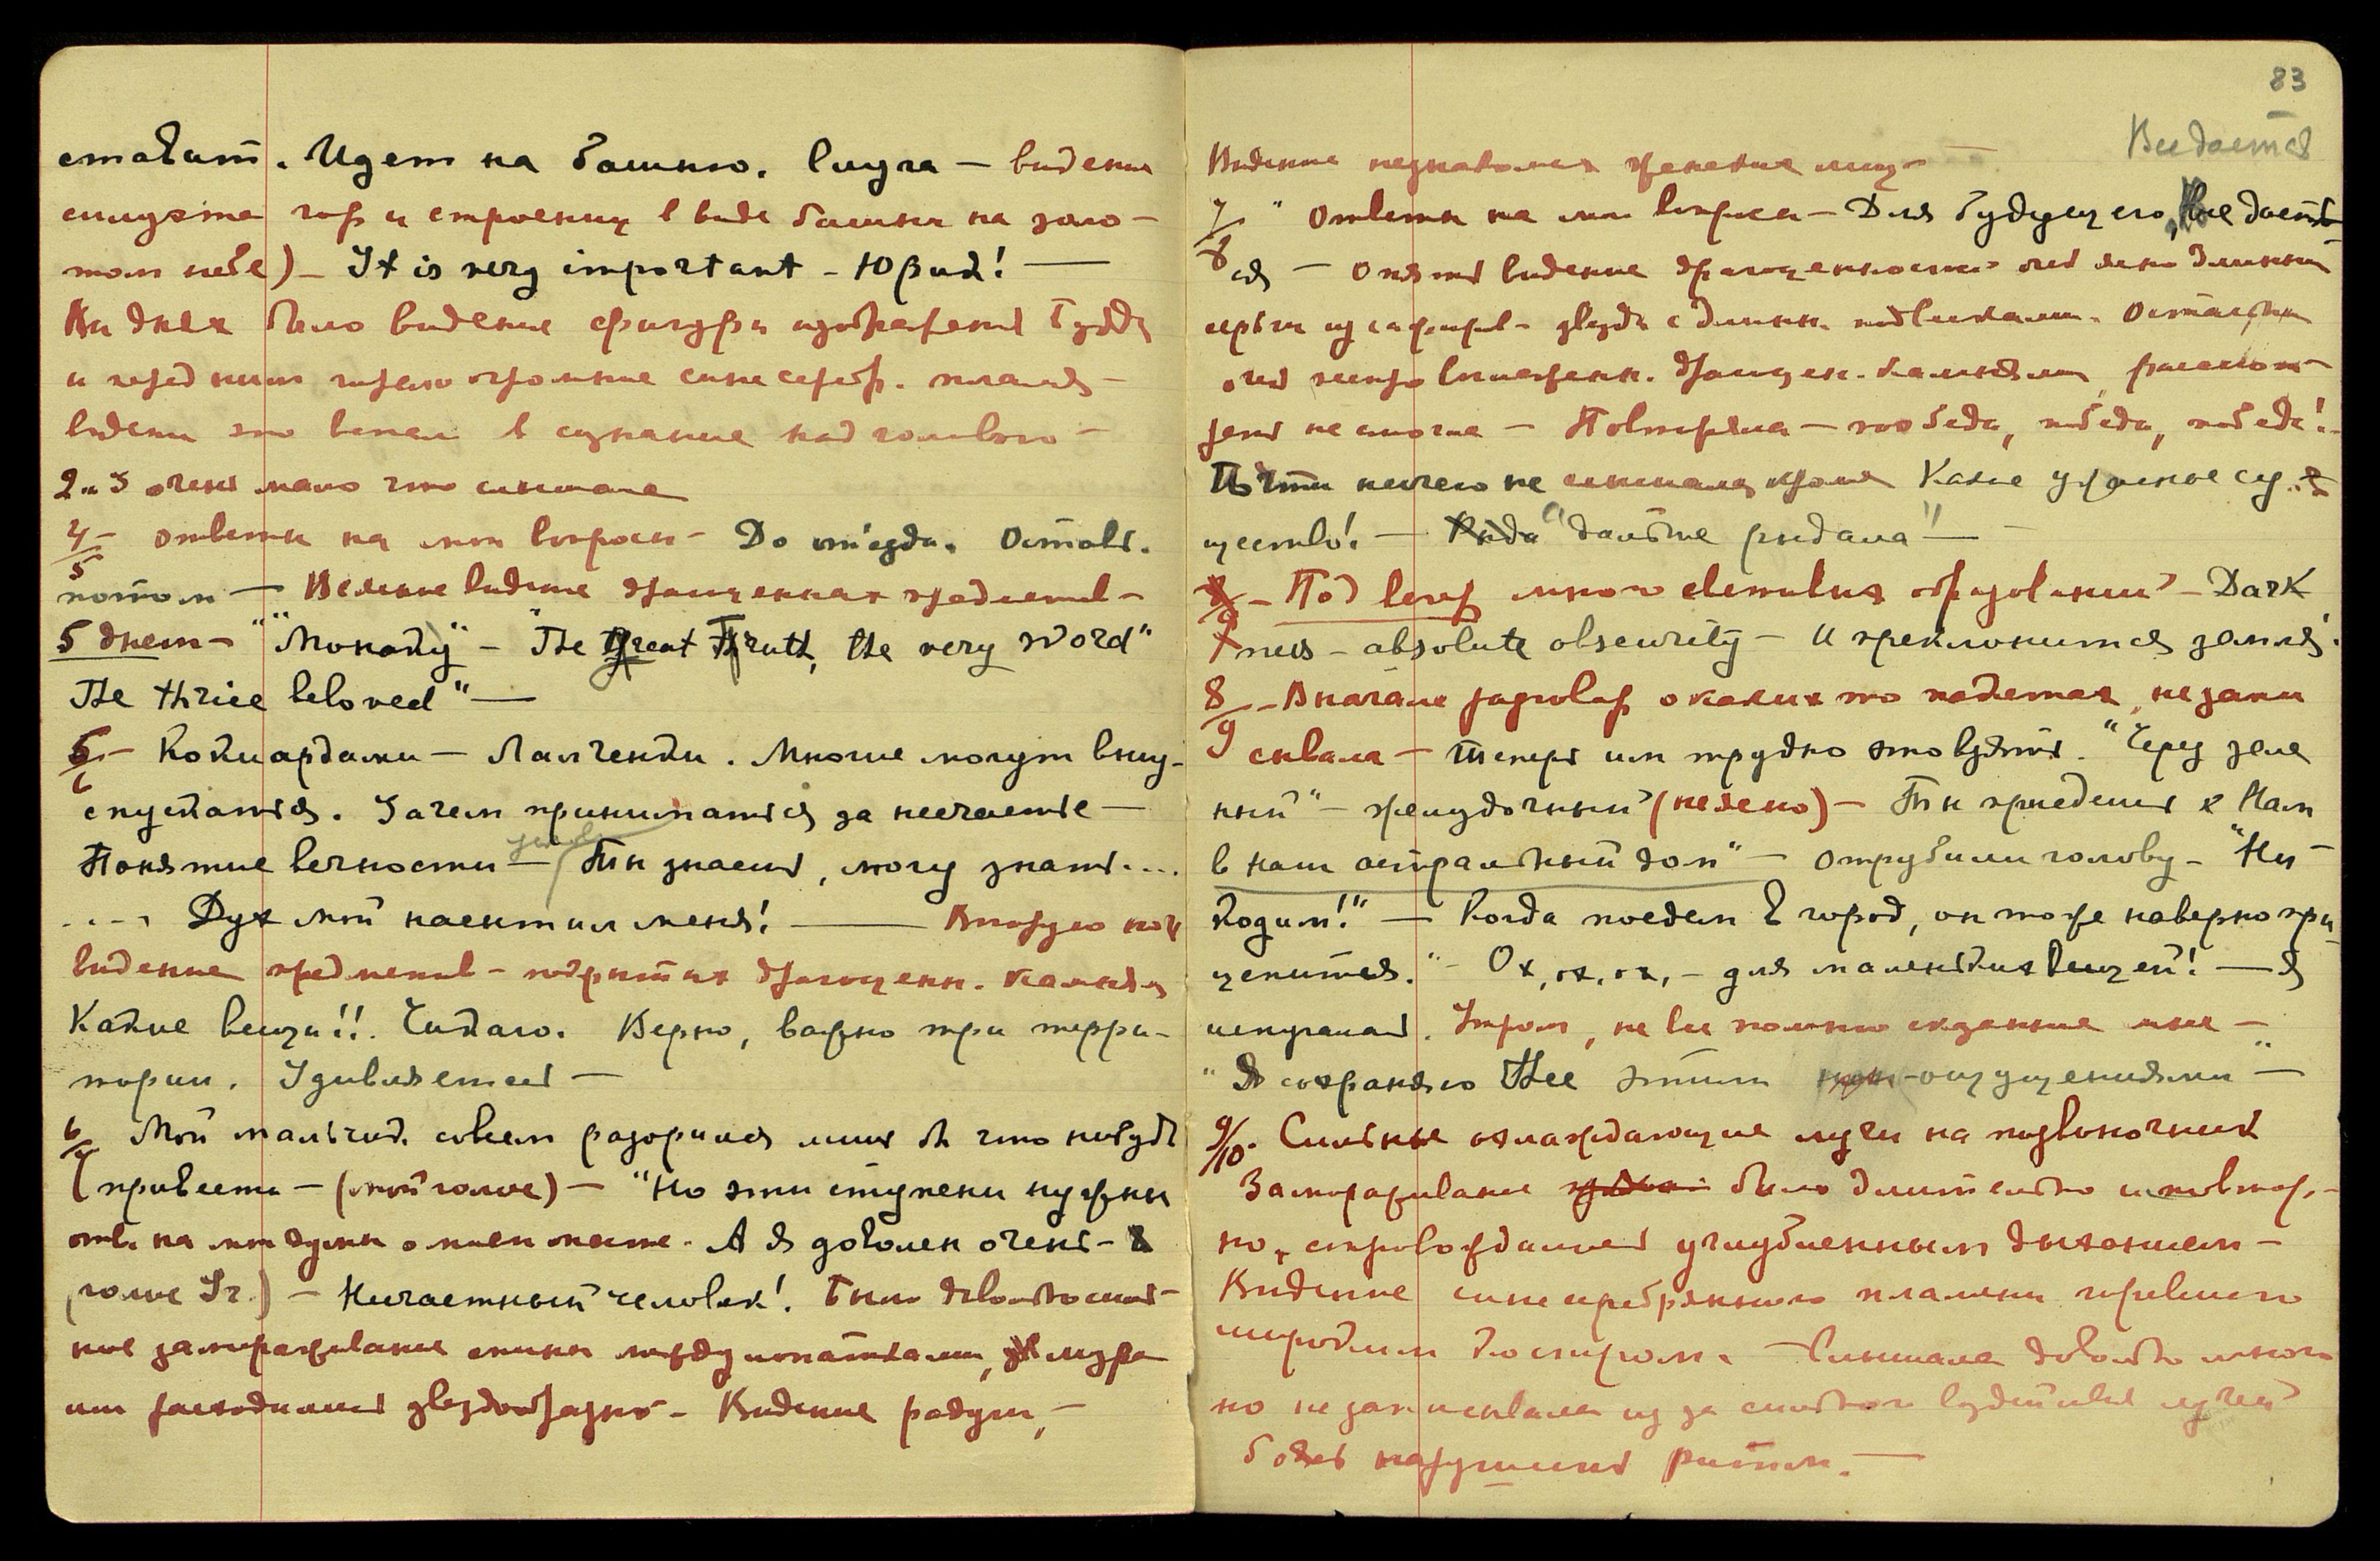 ставит. Идет на башню. Слуга — видение
силуэта гор и строений в виде башни на золо-
том небе) — It is very important — Юрик! —
На днях было видение фигуры изображения Будды
и перед ним горело огромное сине серебр. пламя —
видение это в сознание над головою —
2 и 3 очень мало что слышала
4/5 — ответы на мои вопросы — До отъезда. Оставь.
потом — Неясные видение драгоценных предметов —
5 днем — "Монолу" — "The Great Truth, the very Word"
The thrice beloved" —
5/6 — Кокиардаки — Ламченки. Многие могут внизу
спускаться. Зачем приниматься за несчастье —
Понятие вечности — Ты знаешь, могу знать....
.... Дух мой насытил меня! — Вторую ночь
видение предметов — покрытых драгоценн. камнями
Какие вещи!!. Читаю. Верно, важно три терри-
тории. Удивляется —
6/7 Мой мальчик совсем разорился лишь бы что нибудь
привести — (мой голос) — "Но эти ступени нужны
отв. на мои думы о моем месте. А я доволен очень —
голос Уч.) — Несчастный человек! Было довольно силь-
ное замораживание спины между лопатками,
ши расходились звездообразно — Видение радуги, —
83
Видение незнакомых женских лиц —
Выдается
7/8 " Ответы на мои вопросы — Для будущего, Не дает
ся — Опять видение драгоценностей очень ясно длинные
серьги из сапфиров — звезда с длинн. подвесками. Остальные
очень пестро вышедшие. драгоцен. камнями,
жены не смогла — Повторяла — победа, победа, победа!
Почти ничего не слышала кроме Какое ужасное су-
щество! — "дальше рыдала" —
8/9 — Под вечер много световых образований — Dark
ness — absolute obscurity — И преклонится земля.
8/9 — Вначале разговор о каких то планетах, не запи
сывала — теперь им трудно это взять. "Через зеле
ный" — желудочный (неясно) — Ты приедешь к Нам
в наш астральный дом" — отрубили голову — "Ны-
ходим!" — Когда поедем в город, он тоже наверно при
ценится." — Ох, ох, ох, — для маленьких вещей! — Я
испугалась. Утром, не все помню сказанное мне —
"Я сохраняю Thee этими ощущениями" —
9/10. Сильные охлаждающие лучи на позвоночник
Замораживание было длительно и повтор-
но, сопровождались углубленным дыханием —
Видение сине серебрянного пламени горевшего
широким костром. — Слышала довольно много
но не записывала из за сильного воздействия лучей
боясь нарушить ритм. —